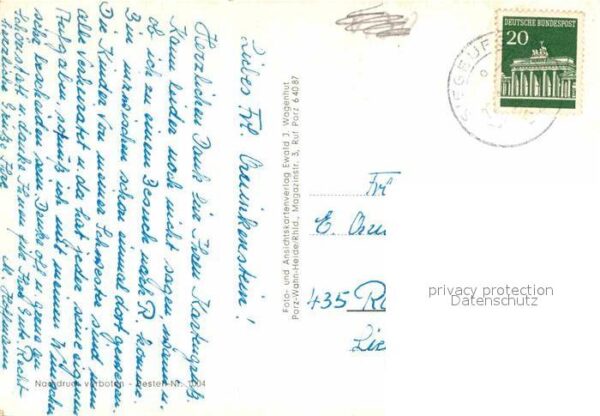 Liebes Frl. Crumkenstein!
Herzlichen Dank für Ihren Kartengruß.
Kann leider noch nicht sagen, wann u.
ob ich zu einem Besuch nach R. komme.
Bin inzwischen schon einmal dort gewesen.
Die Kinder von meiner Schwester sind nun
alle verheiratet u. da hat jeder seine eigenen
Aufgaben, so muß ich mit meinen Wünschen
sehr bescheiden sein. Denke oft u. gerne an
u. danke Ihnen
herzliche Grüße Ihre
M. Hoffmann
Foto- und Ansichtskartenverlag Ewald J. Wagenhut
Porz-Wahn-Heide/Rhld., Magazinstr. 3, Ruf Porz 64087
Nachdruck verboten - Besten-Nr. 1004
DEUTSCHE BUNDESPOST
20
Frl
E.
435 Re
privacy protection
Datenschutz